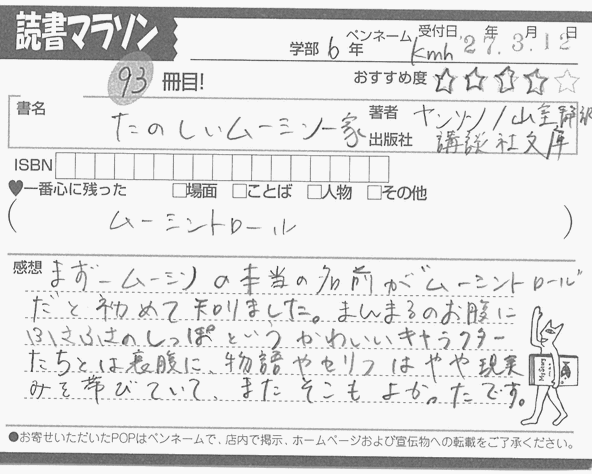 読書マラソン
学部 6年
ペンネーム kmh
受付日 '27年3月12日
93冊目!
おすすめ度 ☆☆☆☆☆
書名 たのしいムーミン一家
著者 ヤンソン/山室静訳
出版社 講談社文庫
ISBN
♥一番心に残った □場面 □ことば □人物 □その他
(ムーミントロール)
感想 まずームーミンの本当の名前が“ムーミントロール”
だと初めて知りました。まんまるのお腹に
ふさふさのしっぽというかわいいキャラクター
たちとは裏腹に、物語やセリフはやや現実
みを帯びていて、またそこもよかったです。
●お寄せいただいたPOPはペンネームで、店内で掲示、ホームページおよび宣伝物への転載をご了承ください。